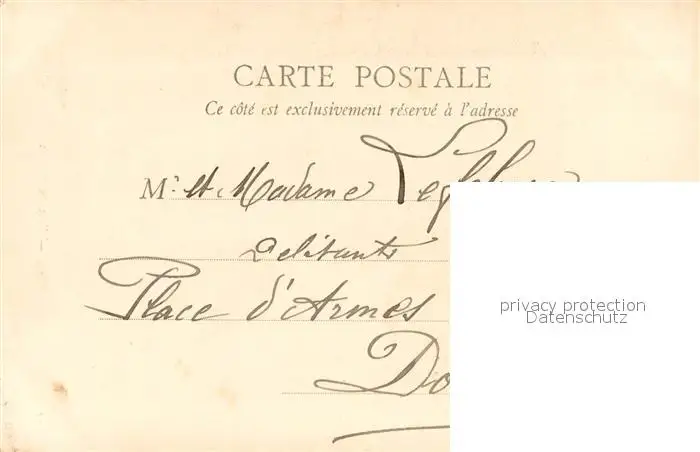 CARTE POSTALE
Ce côté est exclusivement réservé à l'adresse
Mr et Madame
Place d'Armes
privacy protection
Datenschutz